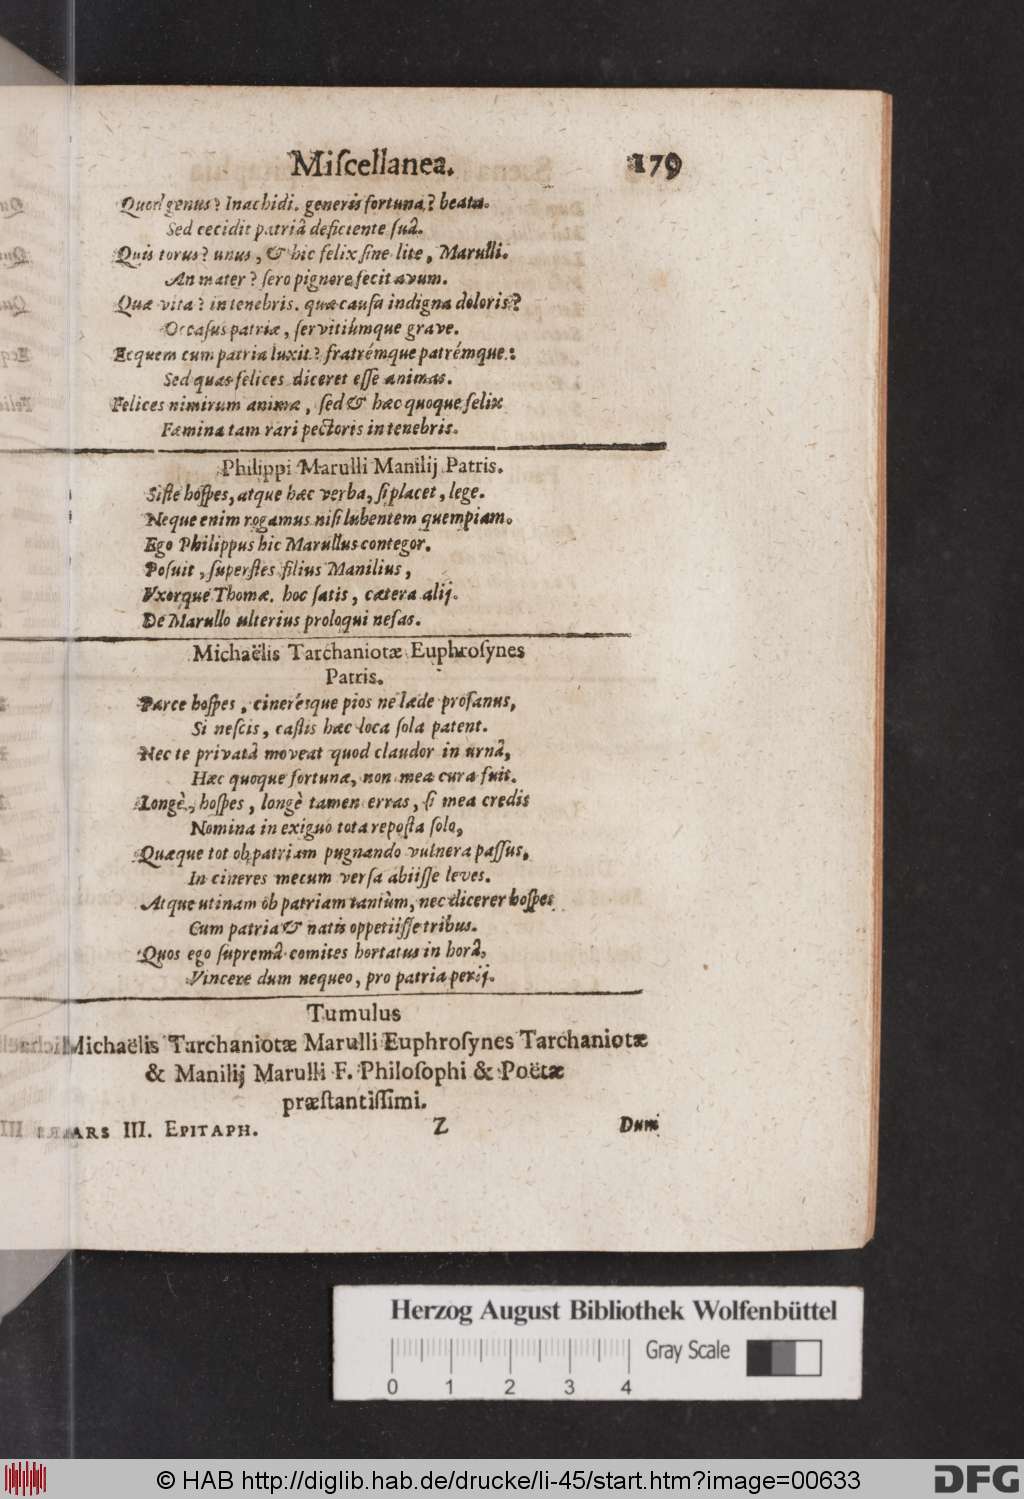 Miſcellanea. 179
Quod genus? Inachidi. generis fortuna? beata.
Sed cecidit patriâ deficiente ſuâ.
Quis torus? unus, & hic felix ſine lite, Marulli.
An mater? ſero pignore fecit avum.
Quæ vita? in tenebris. quæ cauſa indigna doloris?
Occaſus patriæ, ſervitiúmque grave.
Ecquem cum patria luxit? fratrémque patrémque:
Sed quas felices diceret eſſe animas.
Felices nimirum animæ, ſed & hæc quoque felix
Fæmina tam rari pectoris in tenebris.
Philippi Marulli Manilij Patris.
Siſte hoſpes, atque hæc verba, ſi placet, lege.
Neque enim rogamus niſi lubentem quempiam.
Ego Philippus hic Marullus contegor.
Poſuit, ſuperſtes filius Manilius,
Uxorque Thomæ. hoc ſatis, cætera alij.
De Marullo ulterius proloqui nefas.
Michaëlis Tarchaniotæ Euphroſynes
Patris.
Parce hoſpes, cinerésque pios ne læde profanus,
Si neſcis, caſtis hæc loca ſola patent.
Nec te privatâ moveat quod claudor in urnâ,
Hæc quoque fortunæ, non mea cura fuit.
Longè, hoſpes, longè tamen erras, ſi mea credis
Nomina in exiguo tota repoſta ſolo,
Quæque tot ob patriam pugnando vulnera paſſus,
In cineres mecum verſa abiiſſe leves.
Atque utinam ob patriam tantùm, nec dicerer hoſpes
Cum patria & natis oppetiiſſe tribus.
Quos ego ſupremâ comites hortatus in horâ,
Vincere dum nequeo, pro patria perij.
Tumulus
Michaëlis Tarchaniotæ Marulli Euphroſynes Tarchaniotæ
& Manilij Marulli F. Philoſophi & Poëtæ
præſtantiſſimi.
ARS III. EPITAPH. Z Dum
Herzog August Bibliothek Wolfenbüttel
Gray Scale
0 1 2 3 4
© HAB http://diglib.hab.de/drucke/li-45/start.htm?image=00633
DFG